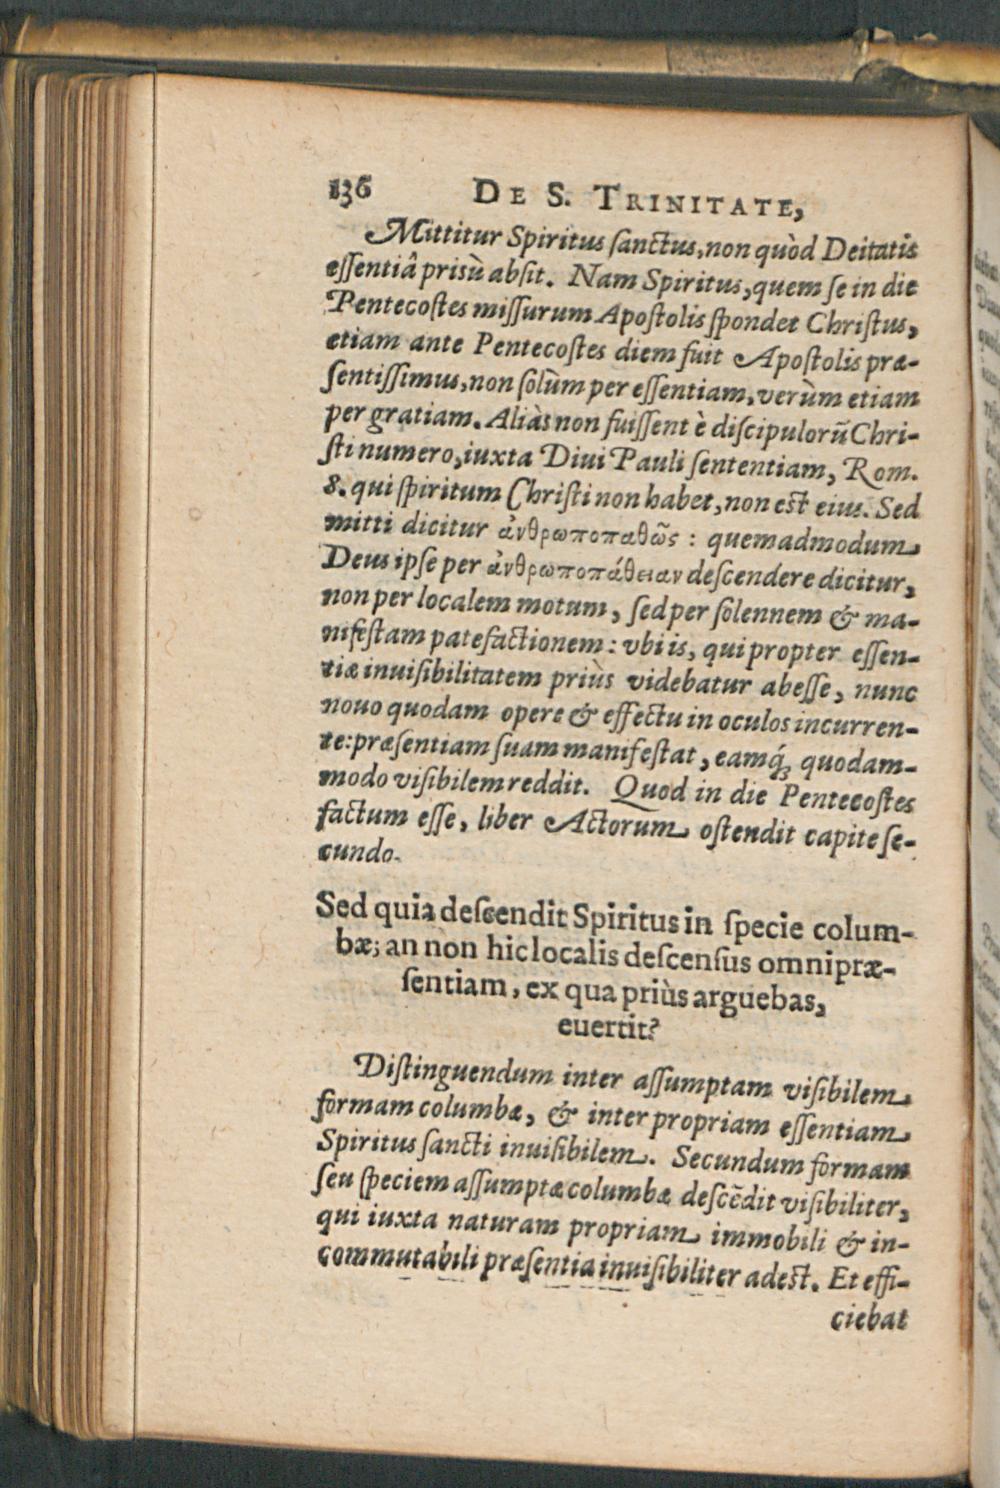 136 DE S. TRINITATE,
Mittitur Spiritus ſanctus, non quòd Deitatis
eſſentiâ priſù abſit. Nam Spiritus, quem ſe in die
Pentecoſtes miſſurum Apoſtolis ſpondet Chriſtus,
etiam ante Pentecoſtes diem fuit Apoſtolis præ-
ſentiſſimus, non ſolùm per eſſentiam, verùm etiam
per gratiam. Aliàs non fuiſſent è diſcipulorũ Chri-
ſti numero, iuxta Diui Pauli ſententiam, Rom.
8. qui ſpiritum Chriſti non habet, non est eius. Sed
mitti dicitur ἀνθρωποπαθῶς : quemadmodum
Deus ipſe per ἀνθρωποπάθειαν deſcendere dicitur,
non per localem motum, ſed per ſolennem & ma-
nifeſtam patefactionem : vbi is, qui propter eſſen-
tiæ inuiſibilitatem priùs videbatur abeſſe, nunc
nouo quodam opere & effectu in oculos incurren-
te: præſentiam ſuam manifeſtat, eamq́; quodam-
modo viſibilem reddit. Quod in die Penteeoſtes
factum eſſe, liber Actorum oſtendit capite ſe-
cundo.
Sed quia deſcendit Spiritus in ſpecie colum-
bæ; an non hic localis deſcenſus omnipræ-
ſentiam, ex qua priùs arguebas,
euertit?
Diſtinguendum inter aſſumptam viſibilem
formam columbæ, & inter propriam eſſentiam
Spiritus ſancti inuiſibilem. Secundum formam
ſeu ſpeciem aſſumptæ columbæ deſcẽdit viſibiliter,
qui iuxta naturam propriam immobili & in-
commutabili præſentia inuiſibiliter adest. Et effi-
ciebat